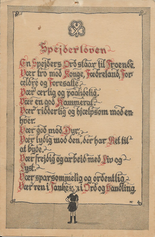 Spejderloven
En Spejders Ord staar til Troende.
Vær tro mod Konge, Fædreland, For-
ældre og Foresatte.
Vær ærlig og
Vær en god Kammerat.
Vær ridderlig og hjælpsom mod en-
hver.
Vær god mod Dyr.
Vær lydig mod den, der har Ret til
at byde.
Vær frejdig og arbejd med Liv og
Lyst.
Vær sparsommelig og ordentlig.
Vær ren i Tanke, Ord og Handling.